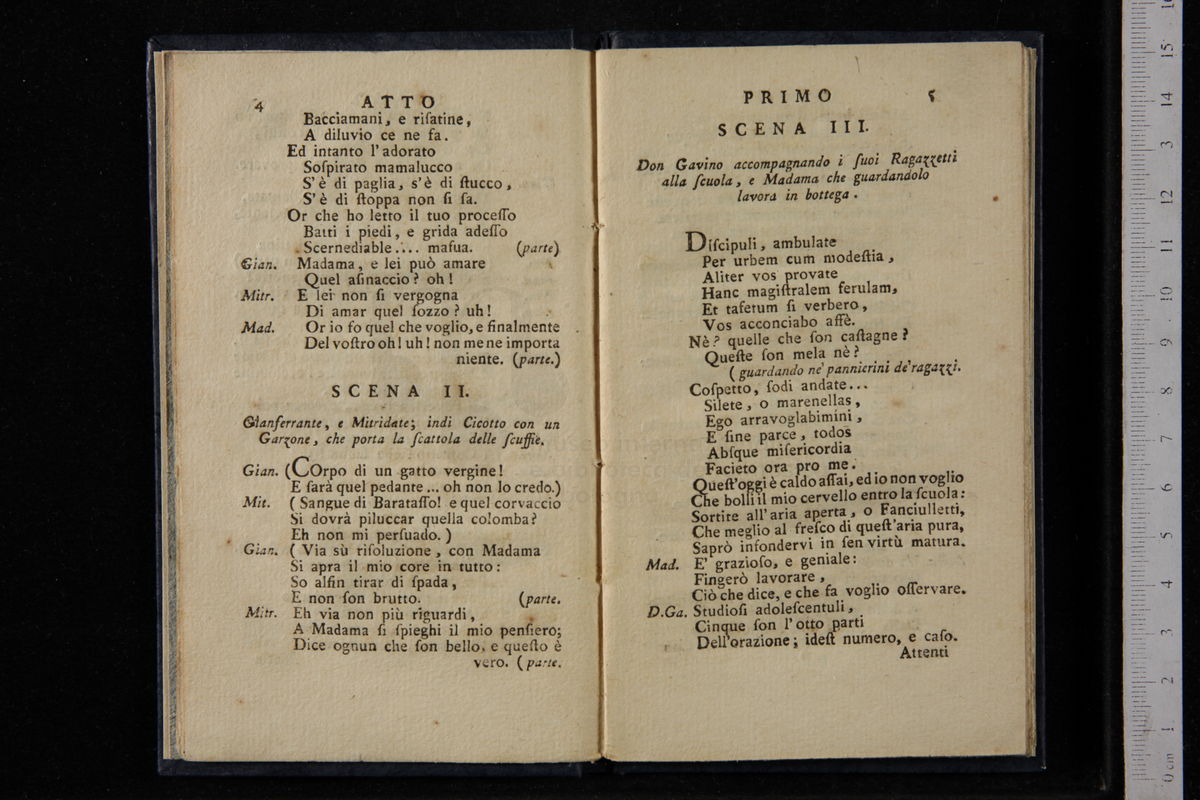 4 ATTO
Bacciamani, e riſatine,
A diluvio ce ne fa.
Ed intanto l'adorato
Soſpirato mamalucco
S'è di paglia, s'è di ſtucco,
S'è di ſtoppa non ſi ſa.
Or che ho letto il tuo proceſſo
Batti i piedi, e grida adeſſo
Scernediable.... mafua. (parte)
Gian. Madama, e lei può amare
Quel aſinaccio? oh!
Mitr. E lei non ſi vergogna
Di amar quel ſozzo? uh!
Mad. Or io fo quel che voglio, e finalmente
Del voſtro oh! uh! non me ne importa
niente. (parte.)
SCENA II.
Gianferrante, e Mitridate; indi Cicotto con un
Garzone, che porta la ſcattola delle ſcuffie.
Gian. (COrpo di un gatto vergine!
E ſarà quel pedante... oh non lo credo.)
Mit. (Sangue di Barataſſo! e quel corvaccio
Si dovrà piluccar quella colomba?
Eh non mi perſuado.)
Gian. (Via sù riſoluzione, con Madama
Si apra il mio core in tutto:
So alfin tirar di ſpada,
E non ſon brutto. (parte.
Mitr. Eh via non più riguardi,
A Madama ſi ſpieghi il mio penſiero;
Dice ognun che ſon bello, e queſto è
vero. (parte.
PRIMO 5
SCENA III.
Don Gavino accompagnando i ſuoi Ragazzetti
alla ſcuola, e Madama che guardandolo
lavora in bottega.
Diſcipuli, ambulate
Per urbem cum modeſtia,
Aliter vos provate
Hanc magiſtralem ferulam,
Et tafetum ſi verbero,
Vos acconciabo affè.
Nè? quelle che ſon caſtagne?
Queſte ſon mela nè?
(guardando ne' pannierini de' ragazzi.
Coſpetto, ſodi andate...
Silete, o marenellas,
Ego arravoglabimini,
E ſine parce, todos
Abſque miſericordia
Facieto ora pro me.
Queſt'oggi è caldo aſſai, ed io non voglio
Che bolli il mio cervello entro la ſcuola:
Sortite all'aria aperta, o Fanciulletti,
Che meglio al freſco di queſt'aria pura,
Saprò infondervi in ſen virtù matura.
Mad. E' grazioſo, e geniale:
Fingerò lavorare,
Ciò che dice, e che fa voglio oſſervare.
D.Ga. Studioſi adoleſcentuli,
Cinque ſon l'otto parti
Dell'orazione; ideſt numero, e caſo.
Attenti
0 cm 1 2 3 4 5 6 7 8 9 10 11 12 13 14 15 16